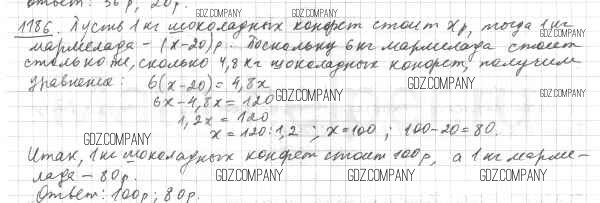 Ответ: 36 р, 20 р.
1186. Пусть 1 кг шоколадных конфет стоит х р, тогда 1 кг
мармелада - (х-20) р. Поскольку 6 кг мармелада стоит
столько же, сколько 4,8 кг шоколадных конфет, получим
уравнение: 6(х-20) = 4,8х
6х-4,8х = 120
1,2х = 120
х = 120:1,2 ; х=100 ; 100-20=80.
Итак, 1 кг шоколадных конфет стоит 100 р, а 1 кг марме-
лада - 80 р.
Ответ: 100 р; 80 р.
GDZ.COMPANY
GDZ.COMPANY
GDZ.COMPANY
GDZ.COMPANY
GDZ.COMPANY
GDZ.COMPANY
GDZ.COMPANY
GDZ.COMPANY
GDZ.COMPANY
GDZ.COMPANY
GDZ.COMPANY